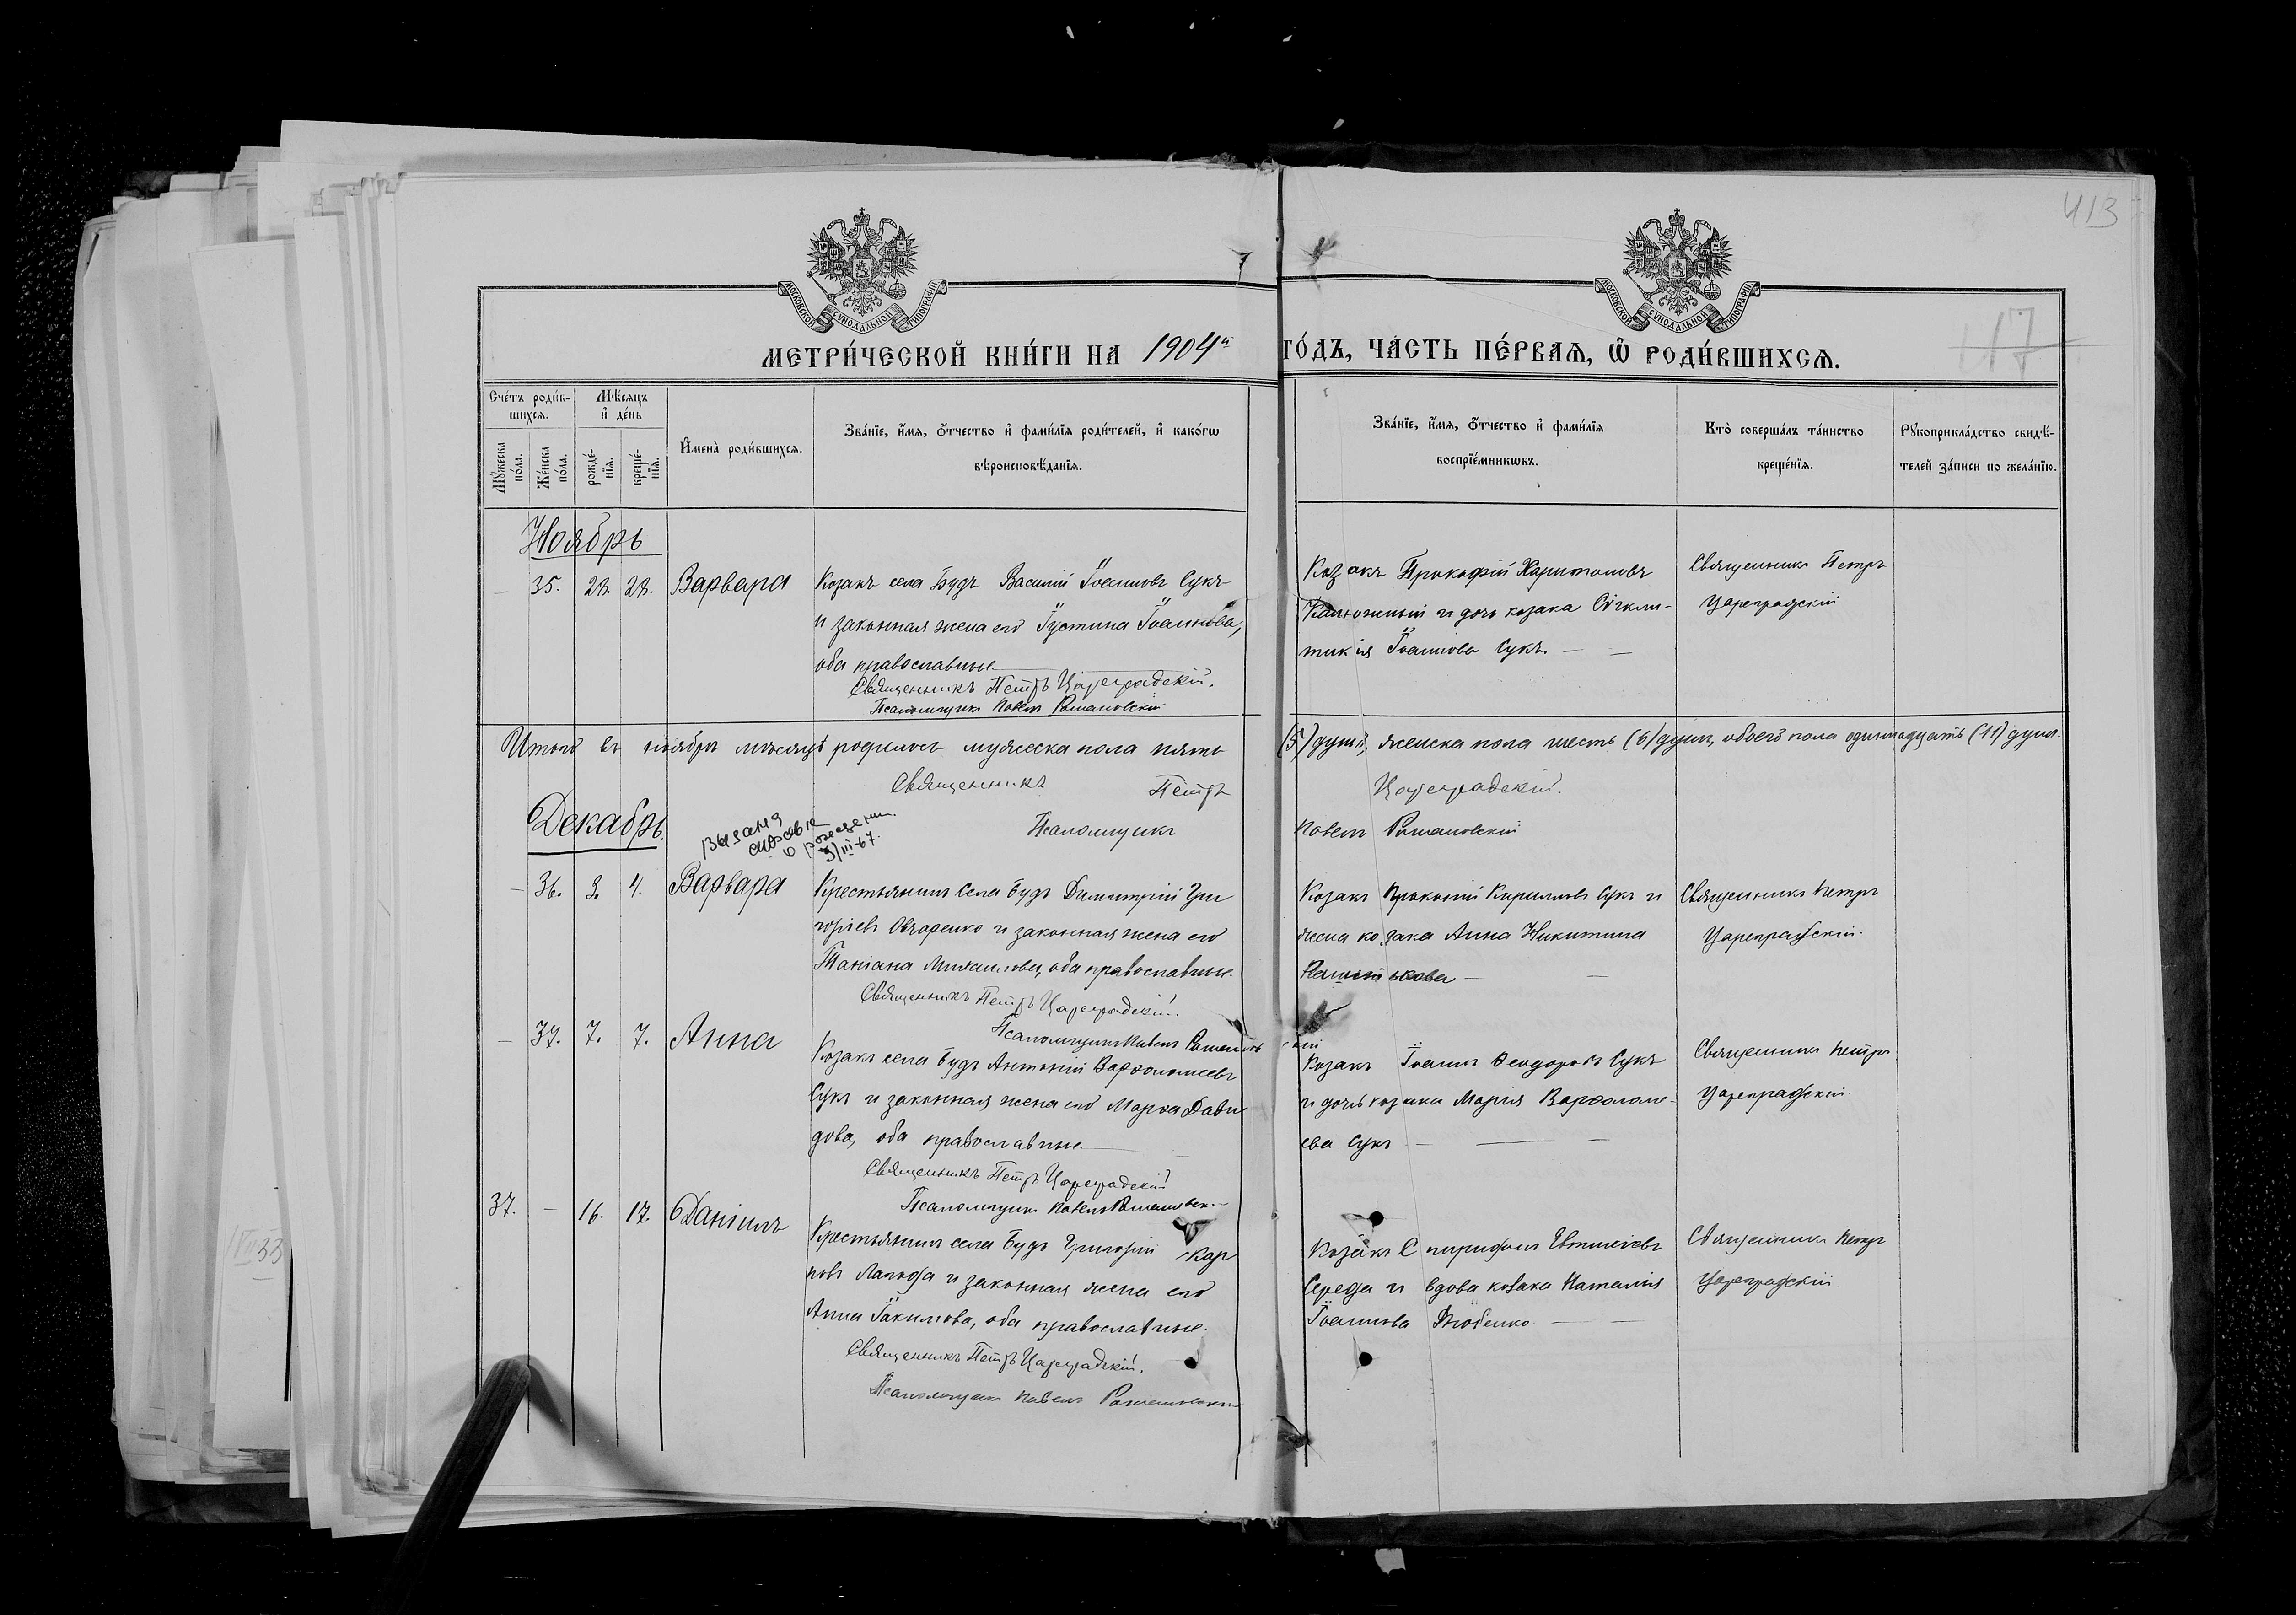 413
МОСКОВСКОЙ СѴНОДАЛЬНОЙ ТИПОГРАФІИ
МОСКОВСКОЙ СѴНОДАЛЬНОЙ ТИПОГРАФІИ
МЕТРИ́ЧЕСКОЙ КНИ́ГИ НА 1904й ГО́ДЪ, ЧА́СТЬ ПЕ́РВАѦ, Ѡ҆ РОДИ́ВШИХСѦ.
417
Сче́тъ роди́в-
шихсѧ.
Мꙋ́жеска по́ла.
Же́нска по́ла.
Мѣ́сѧцъ и҆ де́нь
рожде́-нїѧ.
креще́-нїѧ.
И҆мена̀ роди́вшихсѧ.
Зва́нїе, и҆́мѧ, ѻ҆́тчество и҆ фами́лїѧ роди́телей, и҆ како́гѡ
вѣроисповѣ́данїѧ.
Зва́нїе, и҆́мѧ, ѻ҆́тчество и҆ фами́лїѧ
воспрїе́мникѡвъ.
Кто̀ соверша́лъ та́инство
креще́нїѧ.
Рꙋкоприкла́дство свидѣ́-
телей за́писи по жела́нїю.
Ноябрь
35. 28. 28. Варвара
Козакъ села Будъ Василій Іоанновъ Сукъ
и законная жена его Іустина Іоаннова,
оба православные
Священникъ Петръ Цареградскій.
Псаломщикъ Павелъ
Козакъ Прокофій Харитоновъ
и дочь козака Сѵгкли-
тикія Іоаннова Сукъ. — —
Священникъ Петръ
Цареградскій
Итого въ ноябрѣ мѣсяцѣ родилось мужеска пола пять (5) душъ, женска пола шесть (6) душъ, обоего пола одиннадцать (11) душъ.
Священникъ Петръ Цареградскій.
Псаломщикъ Павелъ
Декабрь
выдана
справка
о рождении.
3/III-67.
— 36. 3. 4. Варвара
Крестьянинъ села Будъ Димитрій Гри
горіевъ Овчаренко и законная жена его
Татіана Михаилова, оба православные
Священникъ Петръ Цареградскій.
Псаломщикъ Павелъ
Козакъ Прокопій Кирилловъ Сукъ и
жена козака Анна Никитина
Священникъ Петръ
Цареградскій.
— 37. 7. 7. Анна
Козакъ села Будъ Антоній Варѳоломеевъ
Сукъ и законная жена его Марѳа Дави
дова, оба православные
Священникъ Петръ Цареградскій
Псаломщикъ Павелъ
Козакъ Іоаннъ Ѳеодоровъ Сукъ
и дочь козака Марія Варѳоломе-
ева Сукъ — — —
Священникъ Петръ
Цареградскій.
37. — 16. 17. Даніилъ
Крестьянинъ села Будъ Григорій Кар
повъ и законная жена его
Анна Іакимова, оба православные.
Священникъ Петръ Цареградскій.
Псаломщикъ Павелъ
Козакъ Спиридонъ Евтихіевъ
Середа и вдова козака Наталія
Іоаннова
Священникъ Петръ
Цареградскій